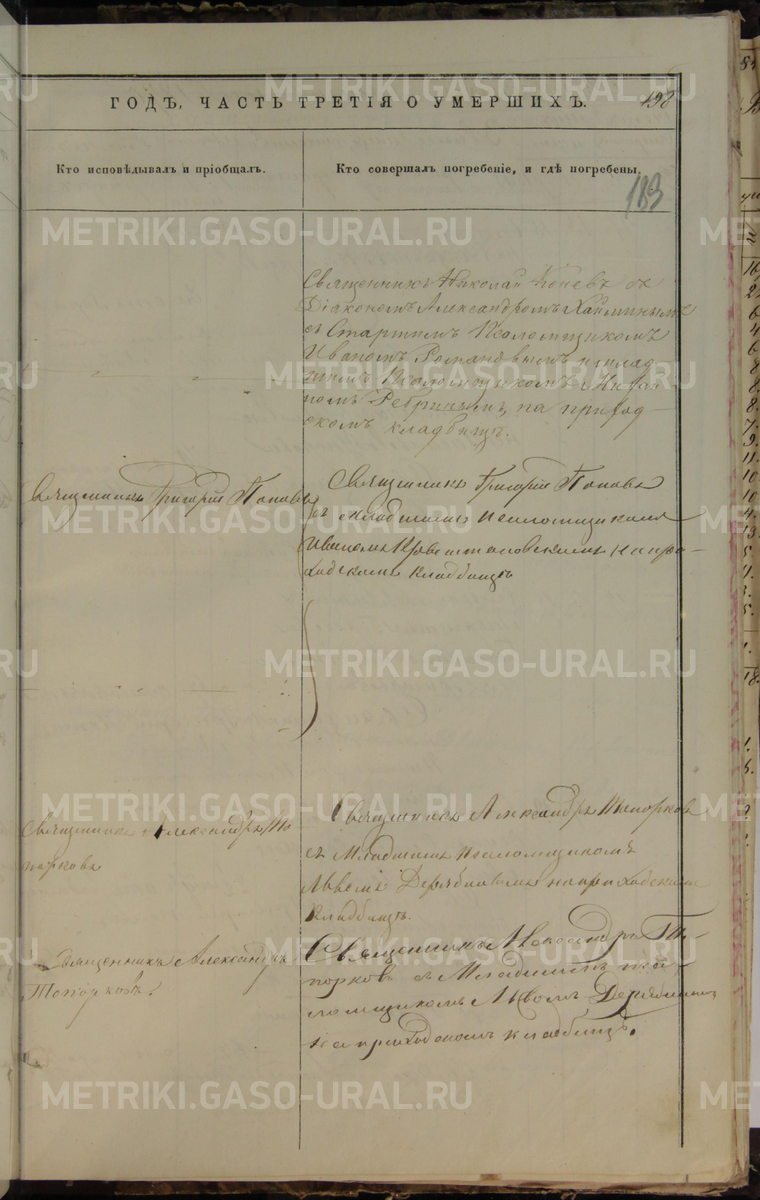 ГОДЪ, ЧАСТЬ ТРЕТІЯ О УМЕРШИХЪ. 198
Кто исповѣдывалъ и пріобщалъ.
Кто совершалъ погребеніе, и гдѣ погребены.
183
Священникъ Николай съ
Діакономъ Александромъ
съ Старшимъ Псаломщикомъ
Иваномъ и млад
шимъ Псаломщикомъ
на приход-
скомъ кладбищѣ.
Священникъ Григорій Поповъ
Священникъ Григорій Поповъ
съ младшимъ псаломщикомъ
Иваномъ на при-
ходскомъ кладбищѣ
Священникъ Александръ То
порковъ
Священникъ Александръ Топорковъ
съ Младшимъ псаломщикомъ
Львомъ Дерябинымъ на приходскомъ
кладбищѣ.
Священникъ Александръ
Топорковъ.
Священникъ Александръ То-
порковъ съ Младшимъ пса-
ломщикомъ Львомъ Дерябинымъ
на приходскомъ кладбищѣ.
METRIKI.GASO-URAL.RU